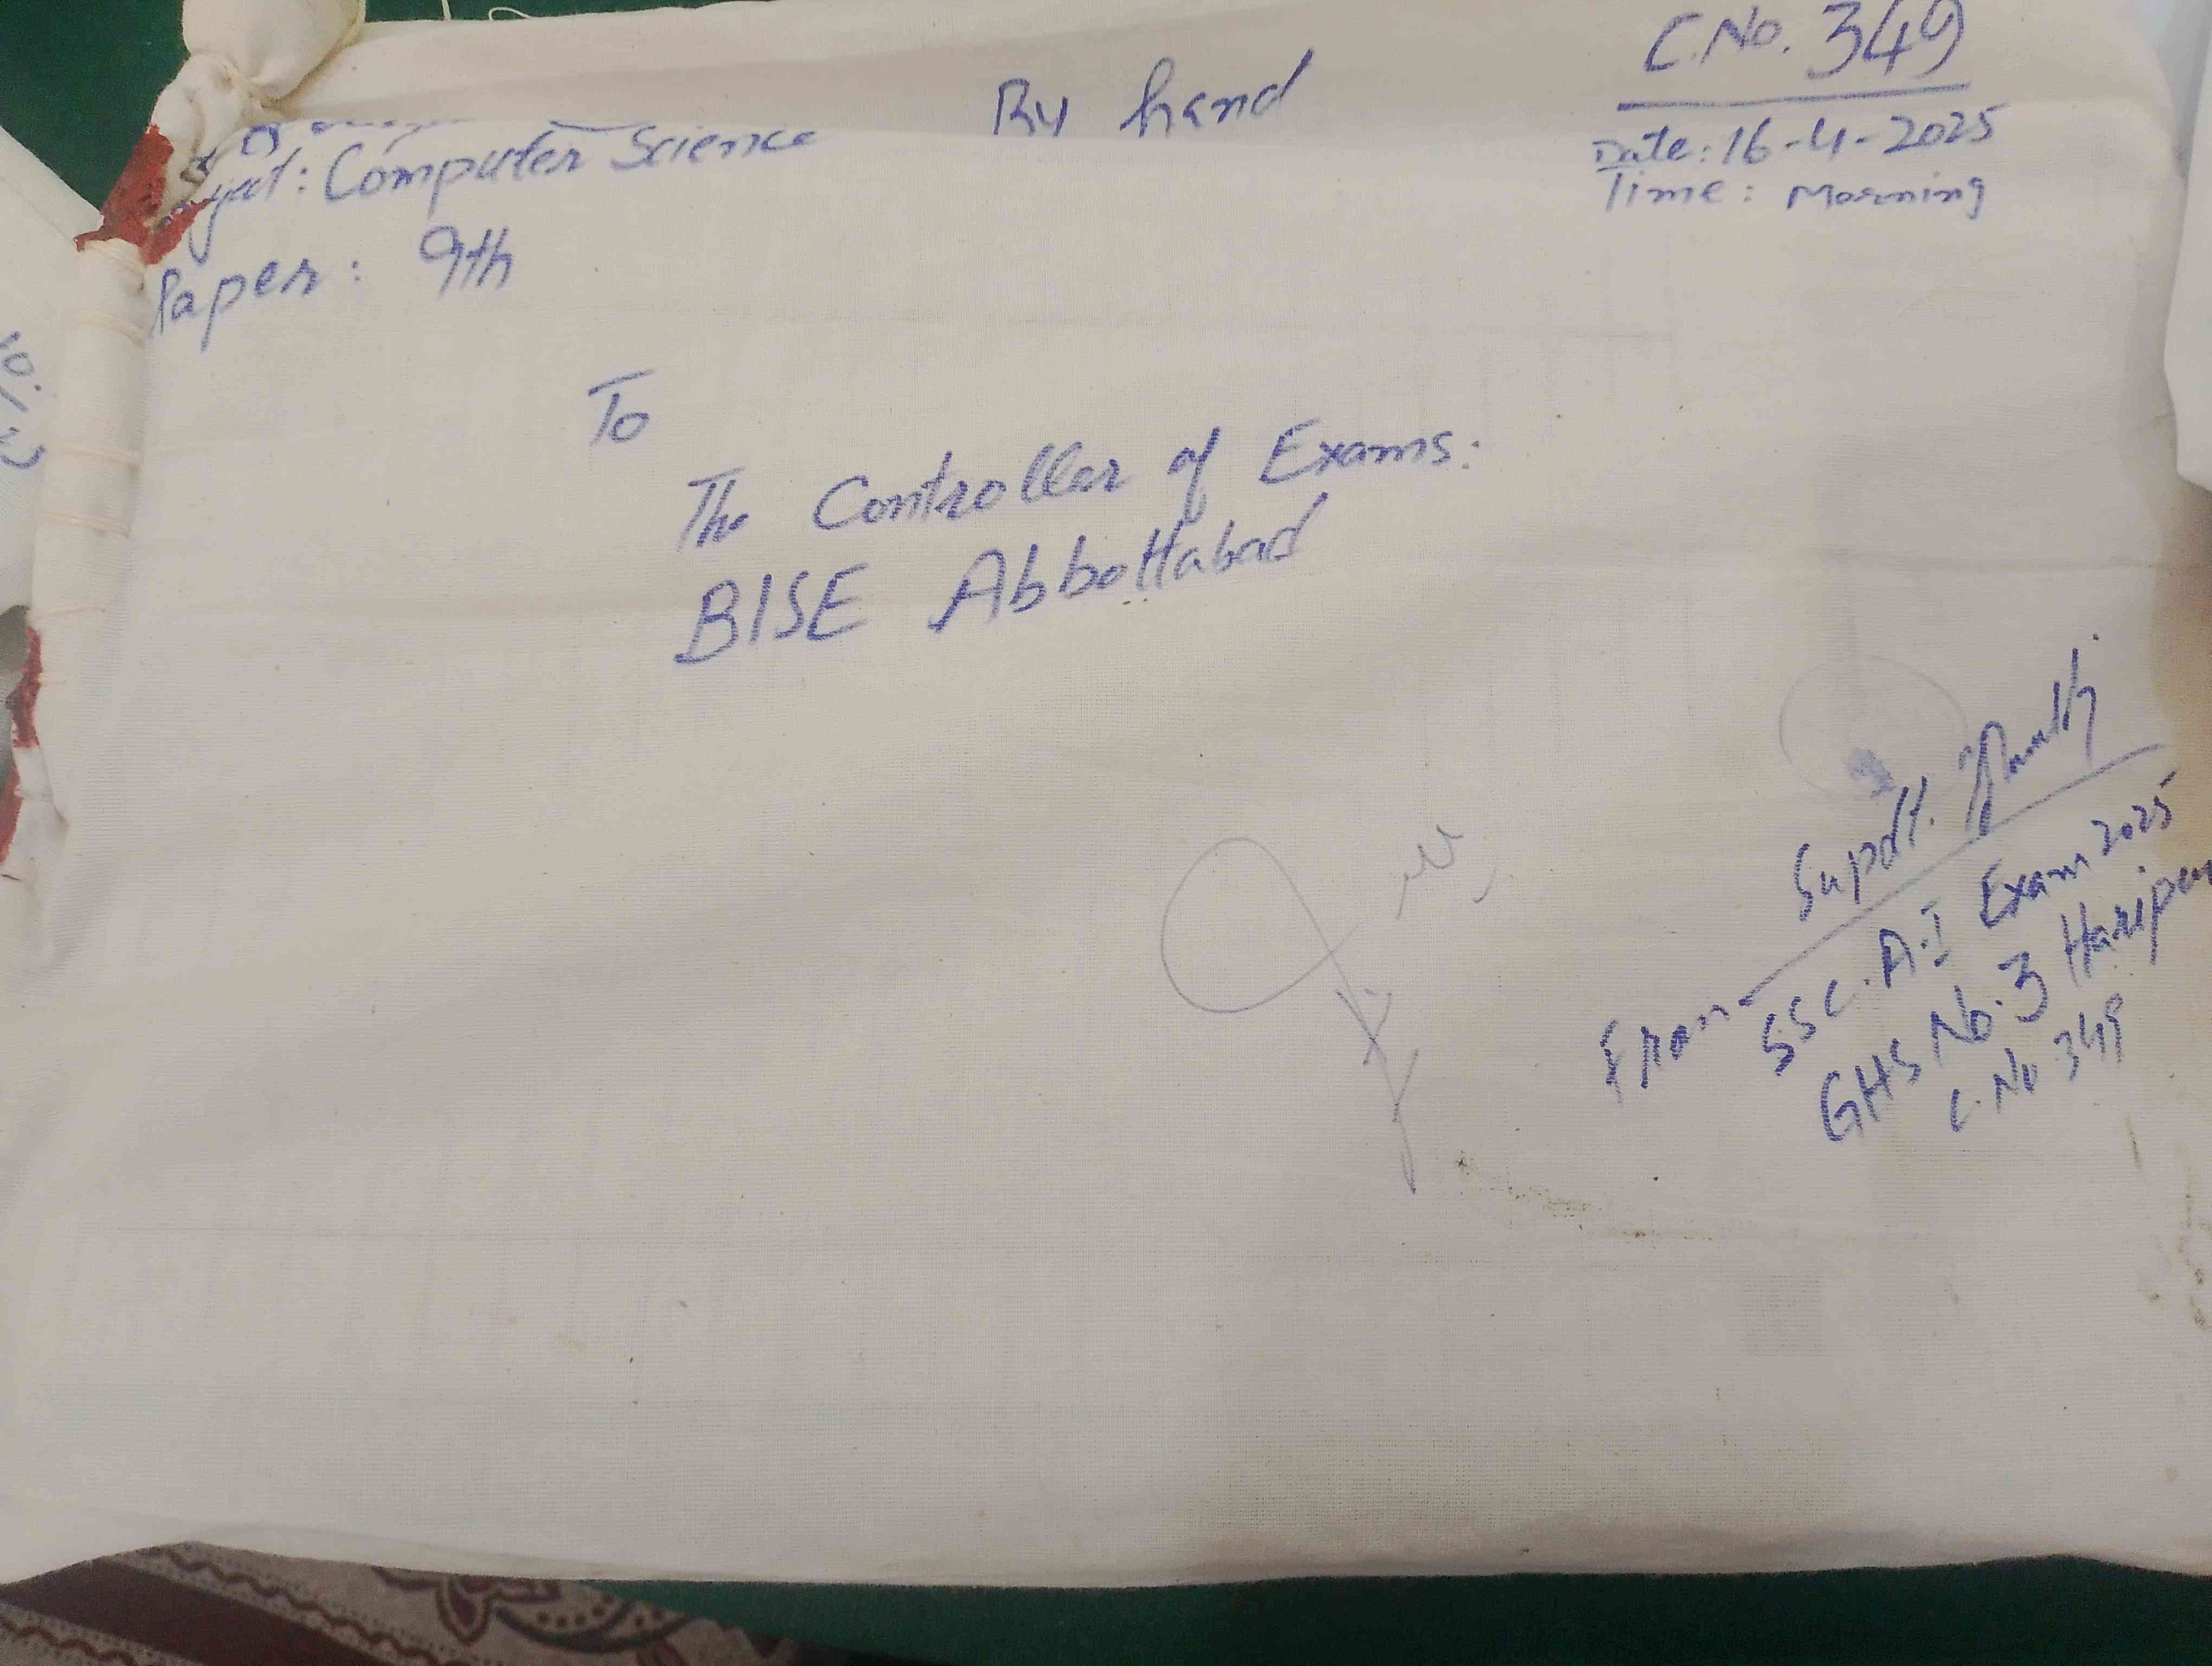 By hand
C.No. 349
Date: 16-4-2025
Time: Morning
Computer Science
Paper: 9th
To
The Controller of Exams.
BISE Abbottabad
Supdtt.
From
SSC. A-I Exam 2025
GHS No. 3 Haripur
C.No 349